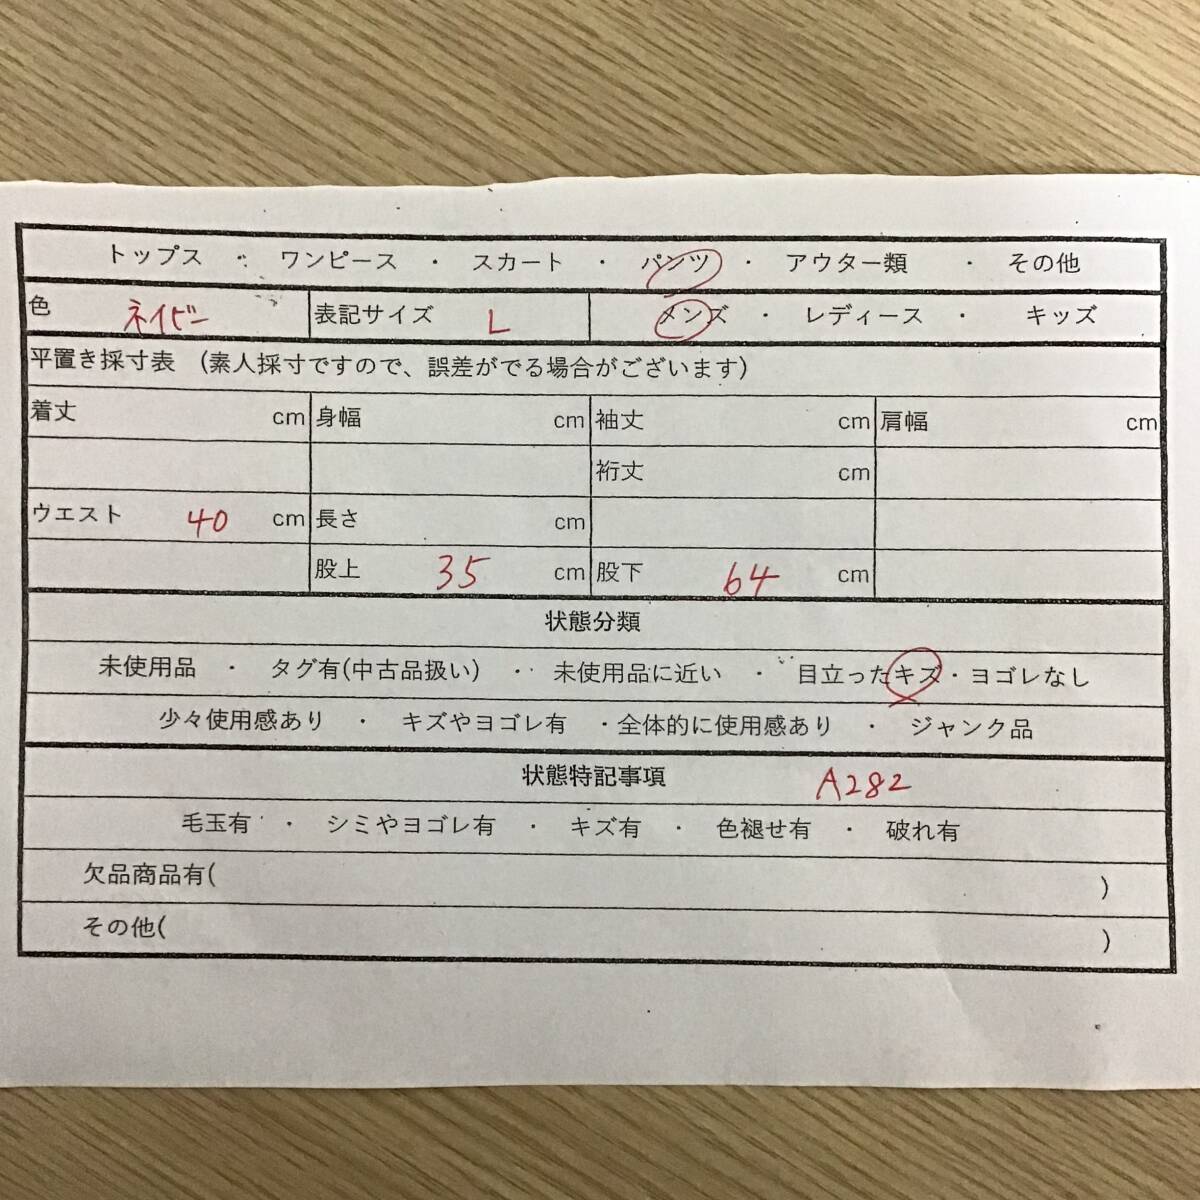 トップス ・ ワンピース ・ スカート ・ パンツ ・ アウター類 ・ その他
色 ネイビー 表記サイズ L メンズ ・ レディース ・ キッズ
平置き採寸表 (素人採寸ですので、誤差がでる場合がございます)
着丈 cm 身幅 cm 袖丈 cm 肩幅 cm
裄丈 cm
ウエスト 40 cm 長さ cm
股上 35 cm 股下 64 cm
状態分類
未使用品 ・ タグ有(中古品扱い) ・ 未使用品に近い ・ 目立ったキズ・ヨゴレなし
少々使用感あり ・ キズやヨゴレ有 ・全体的に使用感あり ・ ジャンク品
状態特記事項 A282
毛玉有 ・ シミやヨゴレ有 ・ キズ有 ・ 色褪せ有 ・ 破れ有
欠品商品有( )
その他( )